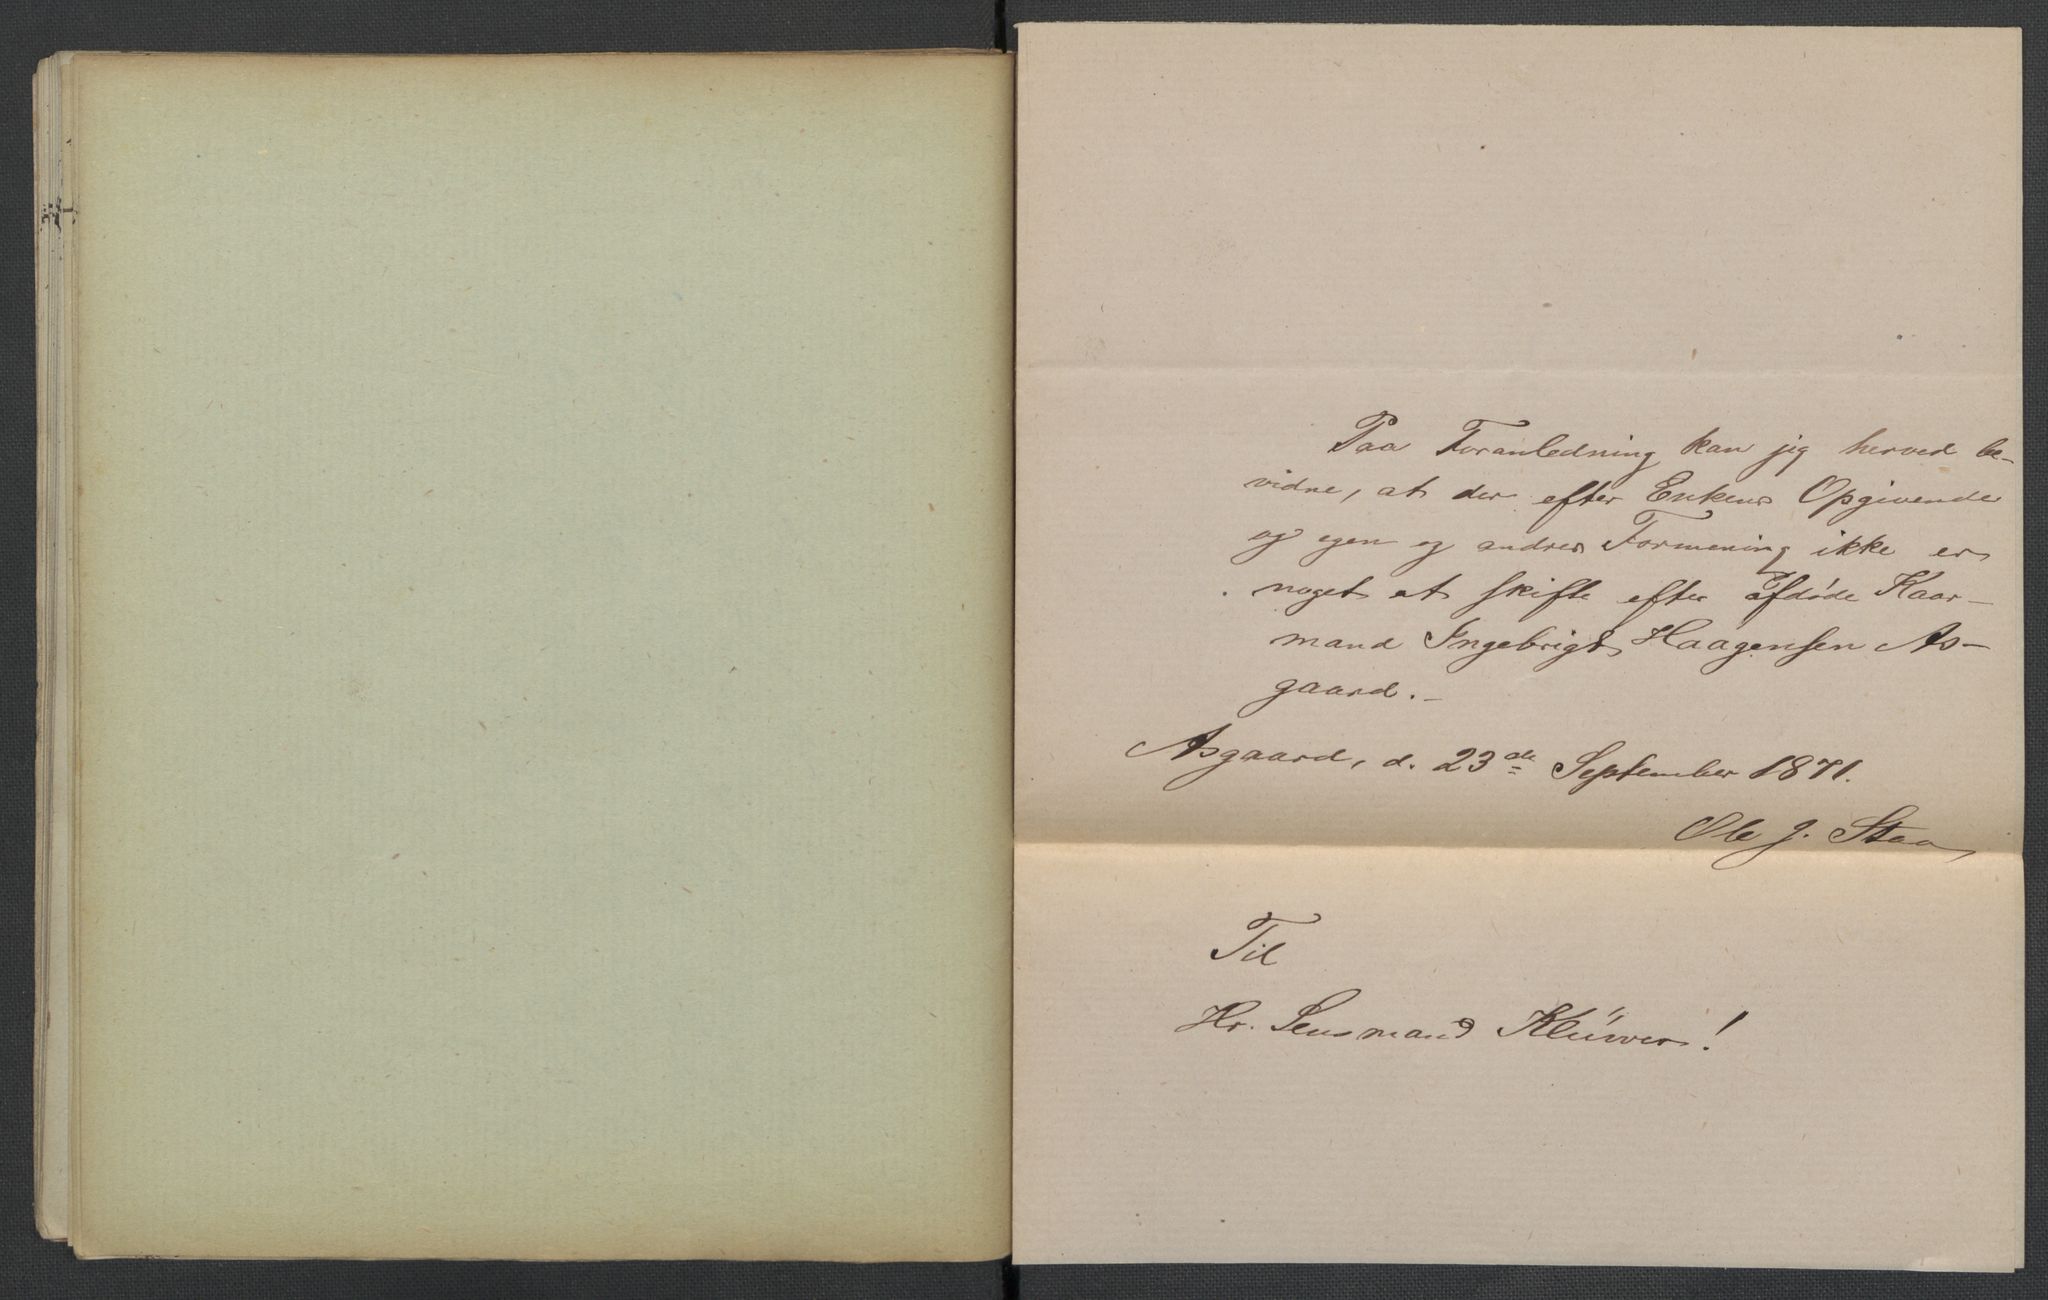 Paa Foranledning kan jeg herved be-
vidne, at der efter Enkens Opgivende
og egen og andres Formening ikke er
noget at skifte efter afdøde Kaar-
mand Ingebrigt Haagensen As-
gaard.-
Asgaard, d. 23de September 1871.
Ole J. Staa
Til
Hr. Lensmand Klüwer!